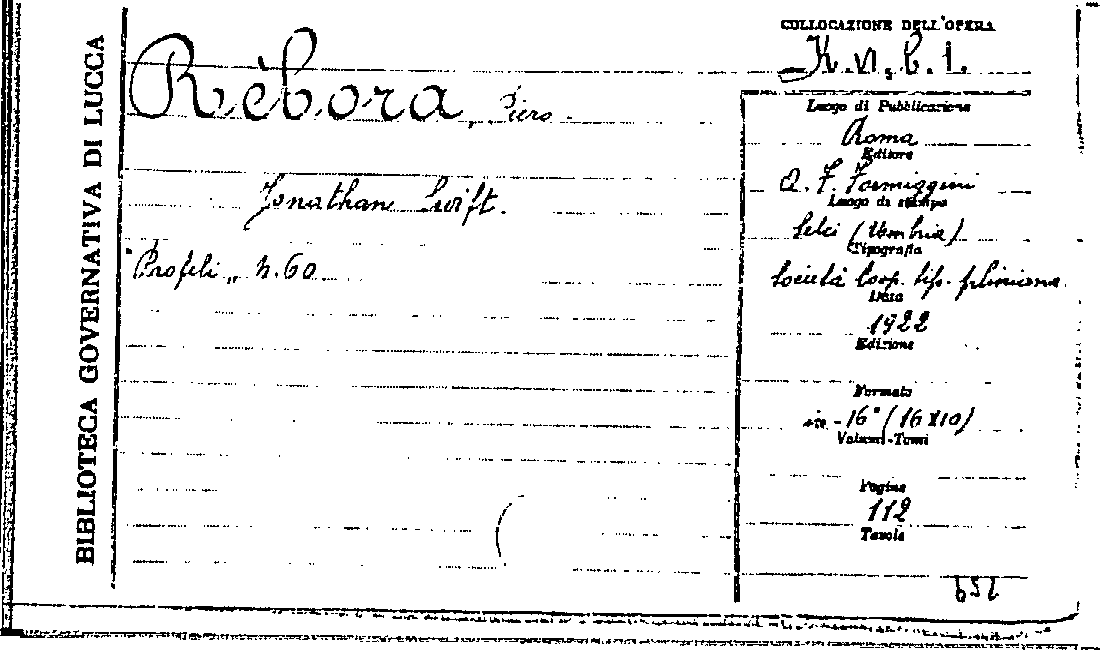 BIBLIOTECA GOVERNATIVA DI LUCCA
Rèbora, Piero
Jonathan Swift.
"Profili" n. 60
COLLOCAZIONE DELL'OPERA
Luogo di Pubblicazione
Roma
Editore
A. F. Formiggini
Luogo di stampa
Selci (Umbria)
Tipografia
Società Coop. tip. pliniana
Data
1922
Edizione
Formato
in-16° (16x10)
Volumi-Tomi
Pagine
112
Tavole